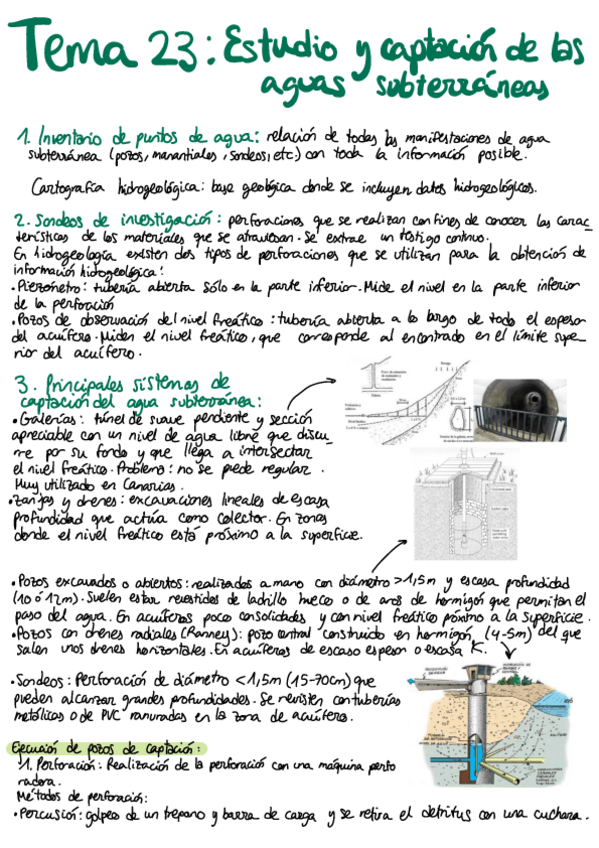 Tema 23: Estudio y captación de las
aguas subterráneas
1. Inventario de puntos de agua: relación de todas las manifestaciones de agua
subterránea (pozos, manantiales, sondeos, etc.) con toda la información posible.
Cartografía hidrogeológica: base geológica donde se incluyen datos hidrogeológicos.
2. Sondeos de investigación: perforaciones que se realizan con fines de conocer las carac_
terísticas de los materiales que se atraviesan. Se extrae un testigo continuo.
En hidrogeología existen dos tipos de perforaciones que se utilizan para la obtención de
información hidrogeológica:
• Piezómetro: tubería abierta sólo en la parte inferior. Mide el nivel en la parte inferior
de la perforación
• Pozos de observación del nivel freático: tubería abierta a lo largo de todo el espesor
del acuífero. Miden el nivel freático, que corresponde al encontrado en el límite supe_
rior del acuífero.
3. Principales sistemas de
captación del agua subterránea:
• Galerías: túnel de suave pendiente y sección
apreciable con un nivel de agua libre que discu_
rre por su fondo y que llega a intersectar
el nivel freático. Problema: no se puede regular.
Muy utilizado en Canarias.
• Zanjas y drenes: excavaciones lineales de escasa
profundidad que actúa como colector. En zonas
donde el nivel freático está próximo a la superficie.
• Pozos excavados o abiertos: realizados a mano con diámetro >1,5m y escasa profundidad
(10 ó 12m). Suelen estar revestidos de ladrillo hueco o de aros de hormigón que permitan el
paso del agua. En acuíferos poco consolidados y con nivel freático próximo a la superficie.
• Pozos con drenes radiales (Ranney): pozo central construido en hormigón (4-5m) del que
salen unos drenes horizontales. En acuíferos de escaso espesor o escasa K.
• Sondeos: Perforación de diámetro <1,5m (15-70cm) que
pueden alcanzar grandes profundidades. Se revisten con tuberías
metálicas o de PVC ranuradas en la zona de acuífero.
Ejecución de pozos de captación:
1. Perforación: Realización de la perforación con una máquina perfo
radora.
Métodos de perforación:
• Percusión: golpeo de un trepano y barra de carga y se retira el detritus con una cuchara.